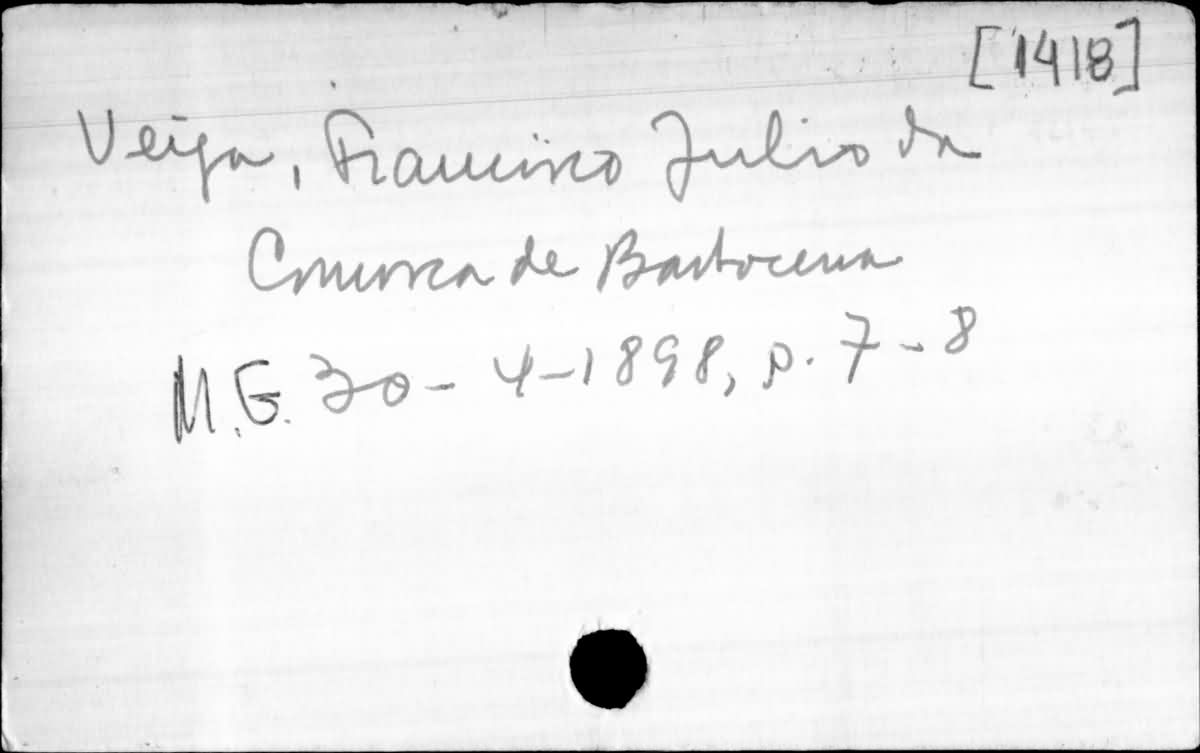 [1418]
Veiga, Francisco Julio da
Comarca de Barbacena
M.G. 30-4-1898, p. 7-8